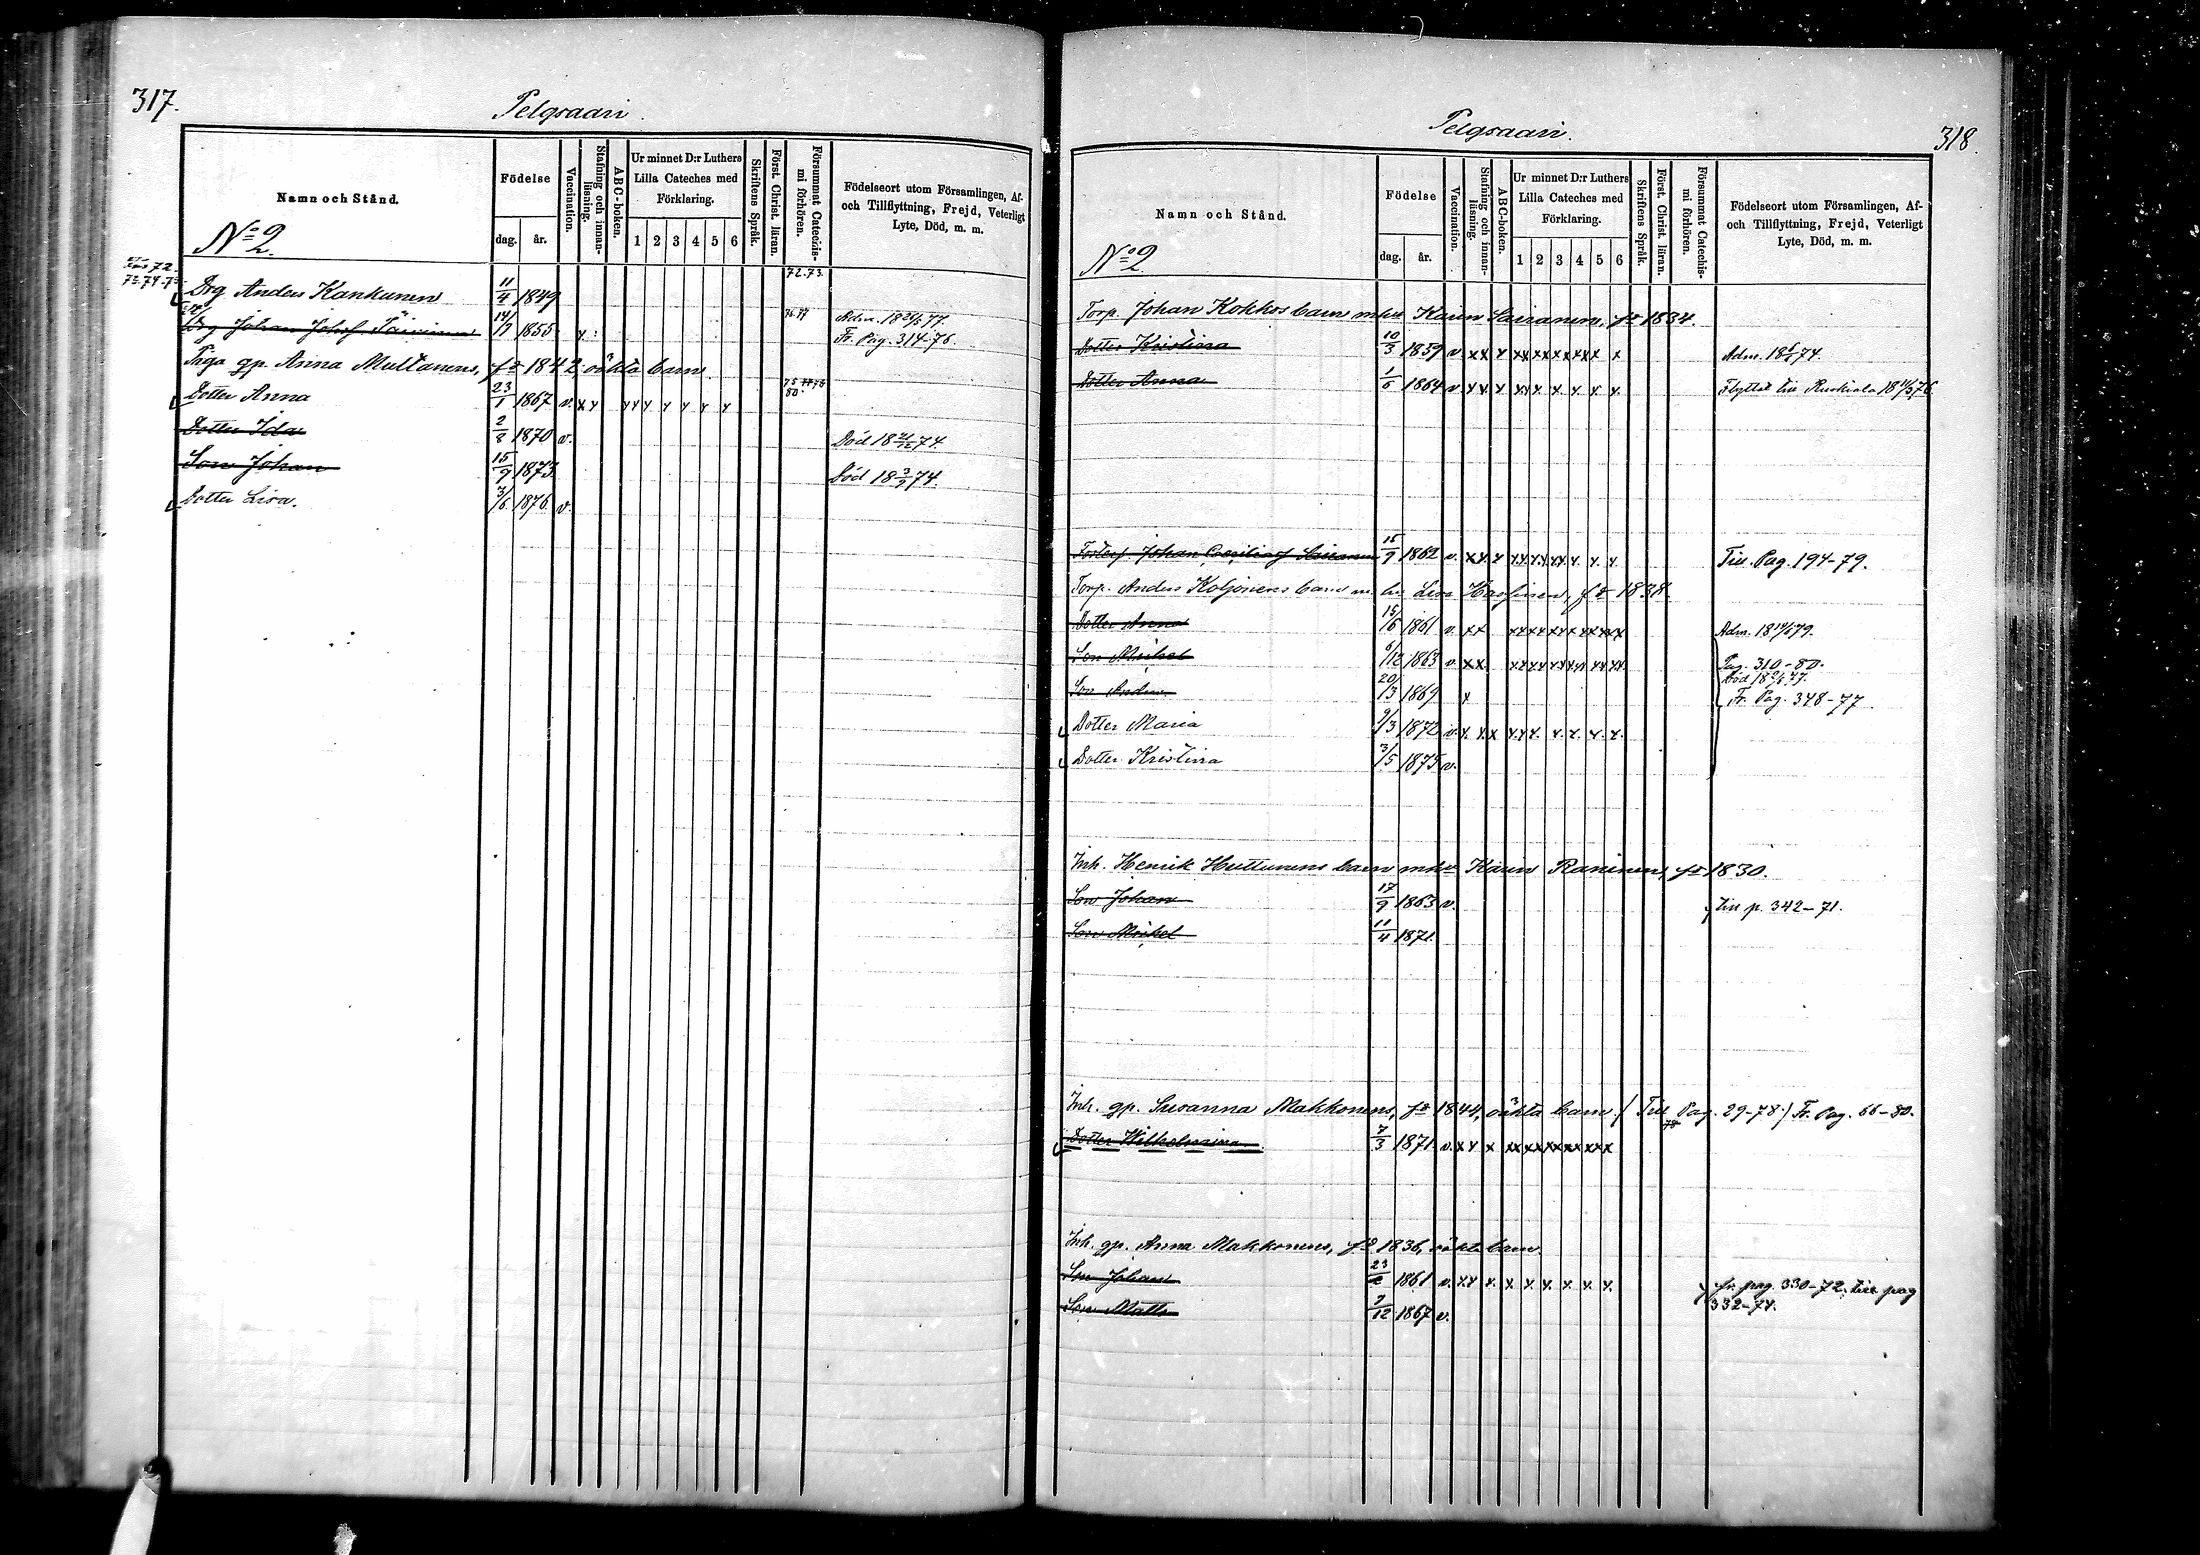 317.
Pelgsaari.
Namn och Stånd.
Födelse
dag. år.
Vaccination.
Stafning och innanläsning.
ABC-boken.
Ur minnet D:r Luthers
Lilla Cateches med
Förklaring.
1 2 3 4 5 6
Skriftens Språk.
Först. Christ. läran.
Försummat Catechismi förhören.
Födelseort utom Församlingen, Af-
och Tillflyttning, Frejd, Veterligt
Lyte, Död, m. m.
No 2.
72. 73.
Drg Anders Kankunen 11/4 1849
Drg Johan Johsf Päivinen 14/7 1855 x 76 77 Adm. 18 77.
Fr. Pag. 314-76.
Piga gp. Anna Multanens, fo 1842, oäkta barn
Dotter Anna 23/1 1867 v. x x x x x x x x x 75 77 78
80.
Dotter Ida 2/8 1870 v. Död 18 21/12 74.
Son Johan 15/9 1873. Död 18 3/9 74.
Dotter Lisa. 7/6 1876. v.
318.
Pelgsaari.
Namn och Stånd.
Födelse
dag. år.
Vaccination.
Stafning och innanläsning.
ABC-boken.
Ur minnet D:r Luthers
Lilla Cateches med
Förklaring.
1 2 3 4 5 6
Skriftens Språk.
Först. Christ. läran.
Försummat Catechismi förhören.
Födelseort utom Församlingen, Af-
och Tillflyttning, Frejd, Veterligt
Lyte, Död, m. m.
No 2.
Torp. Johan Kokkos barn mhu Karin Sairanen, fo 1834.
Dotter Kristina 10/3 1859 v xx x xx xx xx xx x x Adm. 18 74.
Dotter Anna 1/6 1864 v xx x xx x. x. x. x. x. Flyttat till Ruskiala 18 76.
Johan Sairanen 15/9 1862 v. xx x xx xx xx x. x. x Till Pag. 194-79.
Torp. Anders Koljonens barn m. hu Lisa Hassinen, fo 1838.
Dotter Anna 15/6 1861 v. xx xx xx xx xx xx xx Adm. 18 79.
Son Mikel 6/12 1863 v. xx. xx xx xx xx xx xx Pag. 310-80.
Död 18 77.
Son Anders 20/3 1869 x Fr. Pag. 348-77
Dotter Maria 9/3 1872 v. x. xx xx x. x. x. x. x.
Dotter Kristina 3/5 1875 v.
Inh. Henrik Huttunens barn mhu Karin Raninen, fo 1830.
Son Johan 17/9 1863 v. till p. 342-71.
Son Mikel 11/4 1871.
Inh. gp. Susanna Makkonens, fo 1844, oäkta barn / Till Pag. 29-78 / Fr. Pag. 66-80.
78
Dotter Wilhelmina 7/3 1871. v. xx x xx xx xx xx xx x
Inh. gp. Anna Makkonens, fo 1836, oäkta barn.
Son Johan 23/2 1861 v. xx x. x x. x. x. x. x. fr. pag. 330-72, till pag
332-74.
Son Matts 7/12 1867 v.